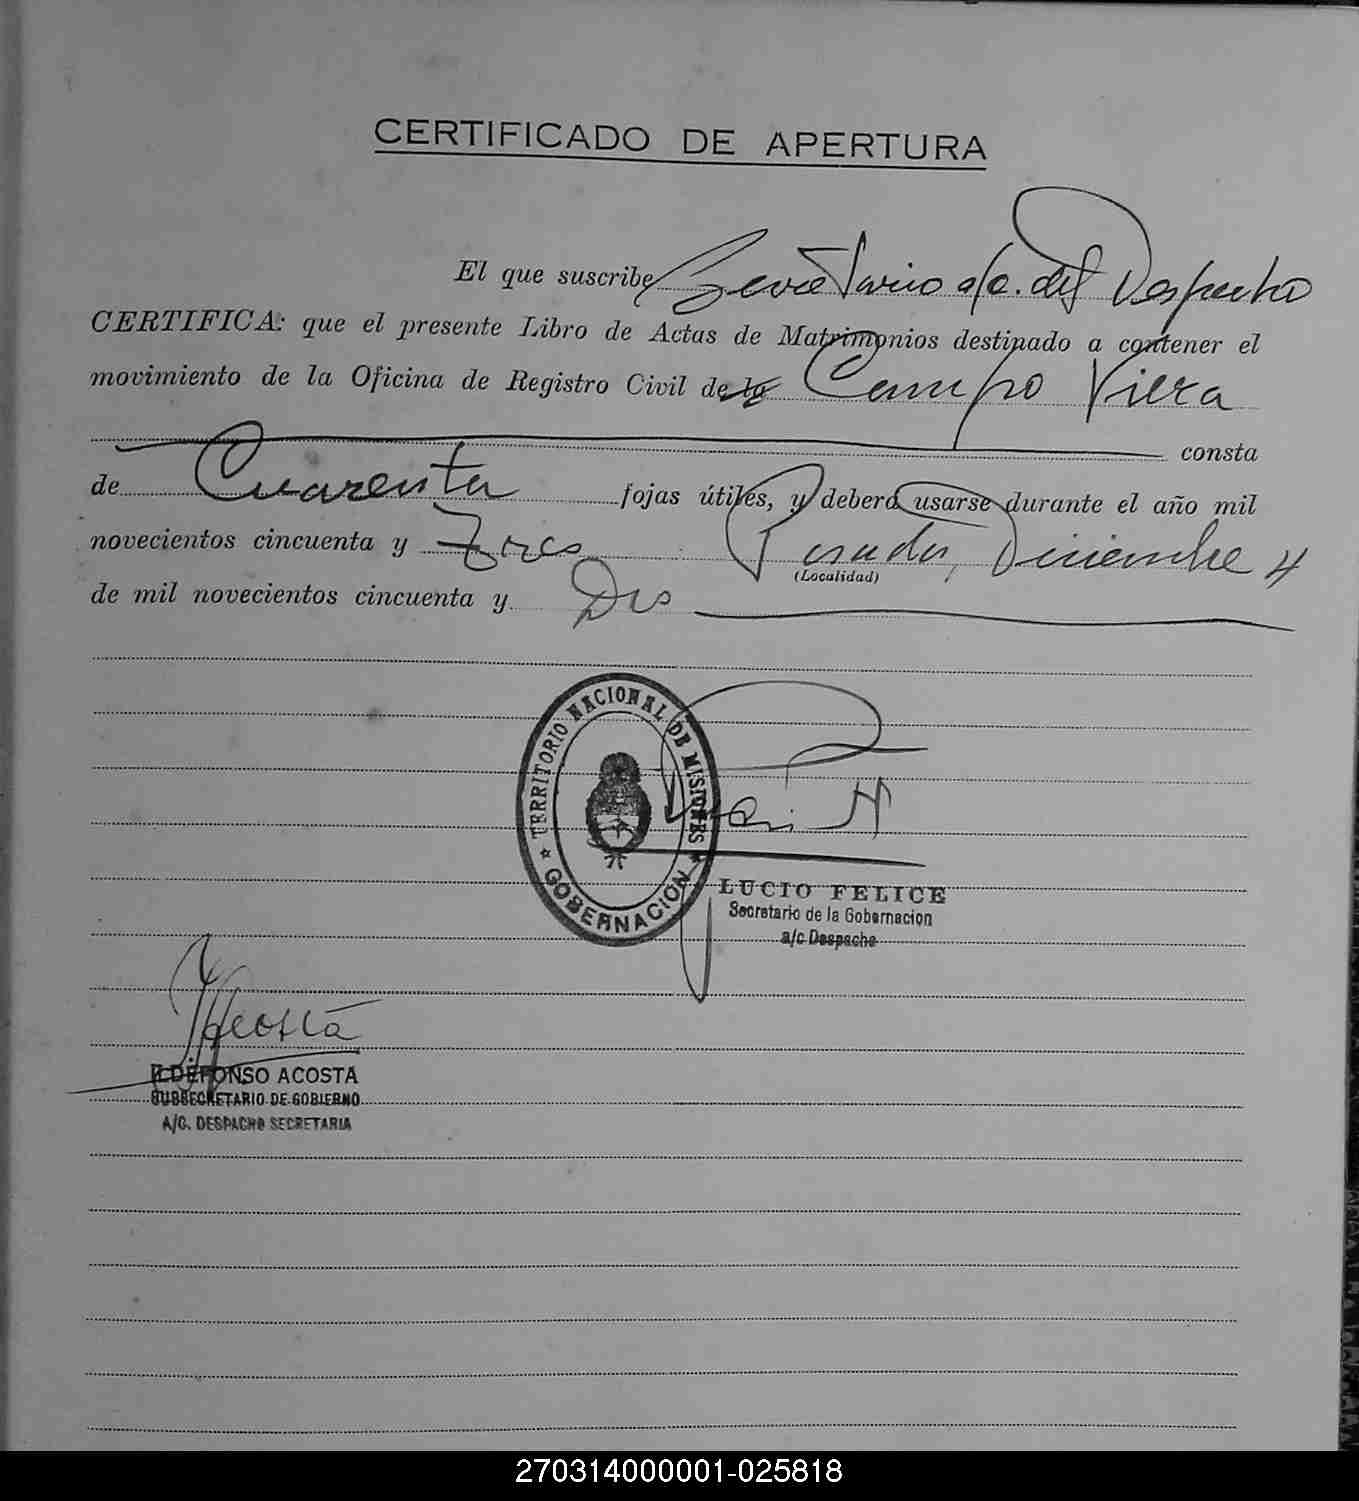 CERTIFICADO DE APERTURA
El que suscribe Secretario a/c. del Despacho
CERTIFICA: que el presente Libro de Actas de Matrimonios destinado a contener el
movimiento de la Oficina de Registro Civil de la Campo Viera
consta
de Cuarenta fojas útiles, y deberá usarse durante el año mil
novecientos cincuenta y Tres Posadas, Diciembre 4
(Localidad)
de mil novecientos cincuenta y Dos
TERRITORIO NACIONAL DE MISIONES
GOBERNACION
LUCIO FELICE
Secretario de la Gobernacion
a/c Despacho
Acosta
ILDEFONSO ACOSTA
SUBSECRETARIO DE GOBIERNO
A/C. DESPACHO SECRETARIA
270314000001-025818